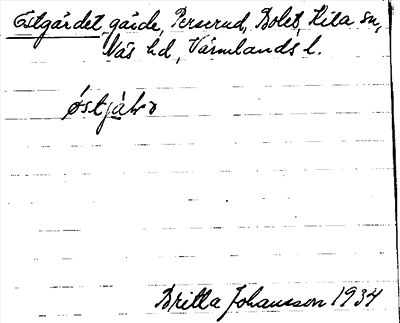 Östgärdet, gärde, Perserud, Bolet, Kila sn,
Näs hd, Värmlands l.
östjàḷə
Britta Johansson 1934